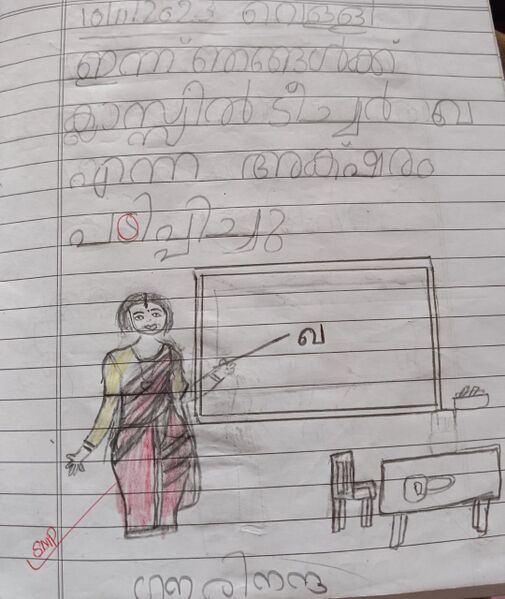 10/11/2023 വെള്ളി
ഇന്ന് ഞങ്ങൾക്ക്
ക്ലാസ്സിൽ ടീച്ചർ ഖ
എന്ന അക്ഷരം
പഠിപ്പിച്ചു
ഖ
SMP